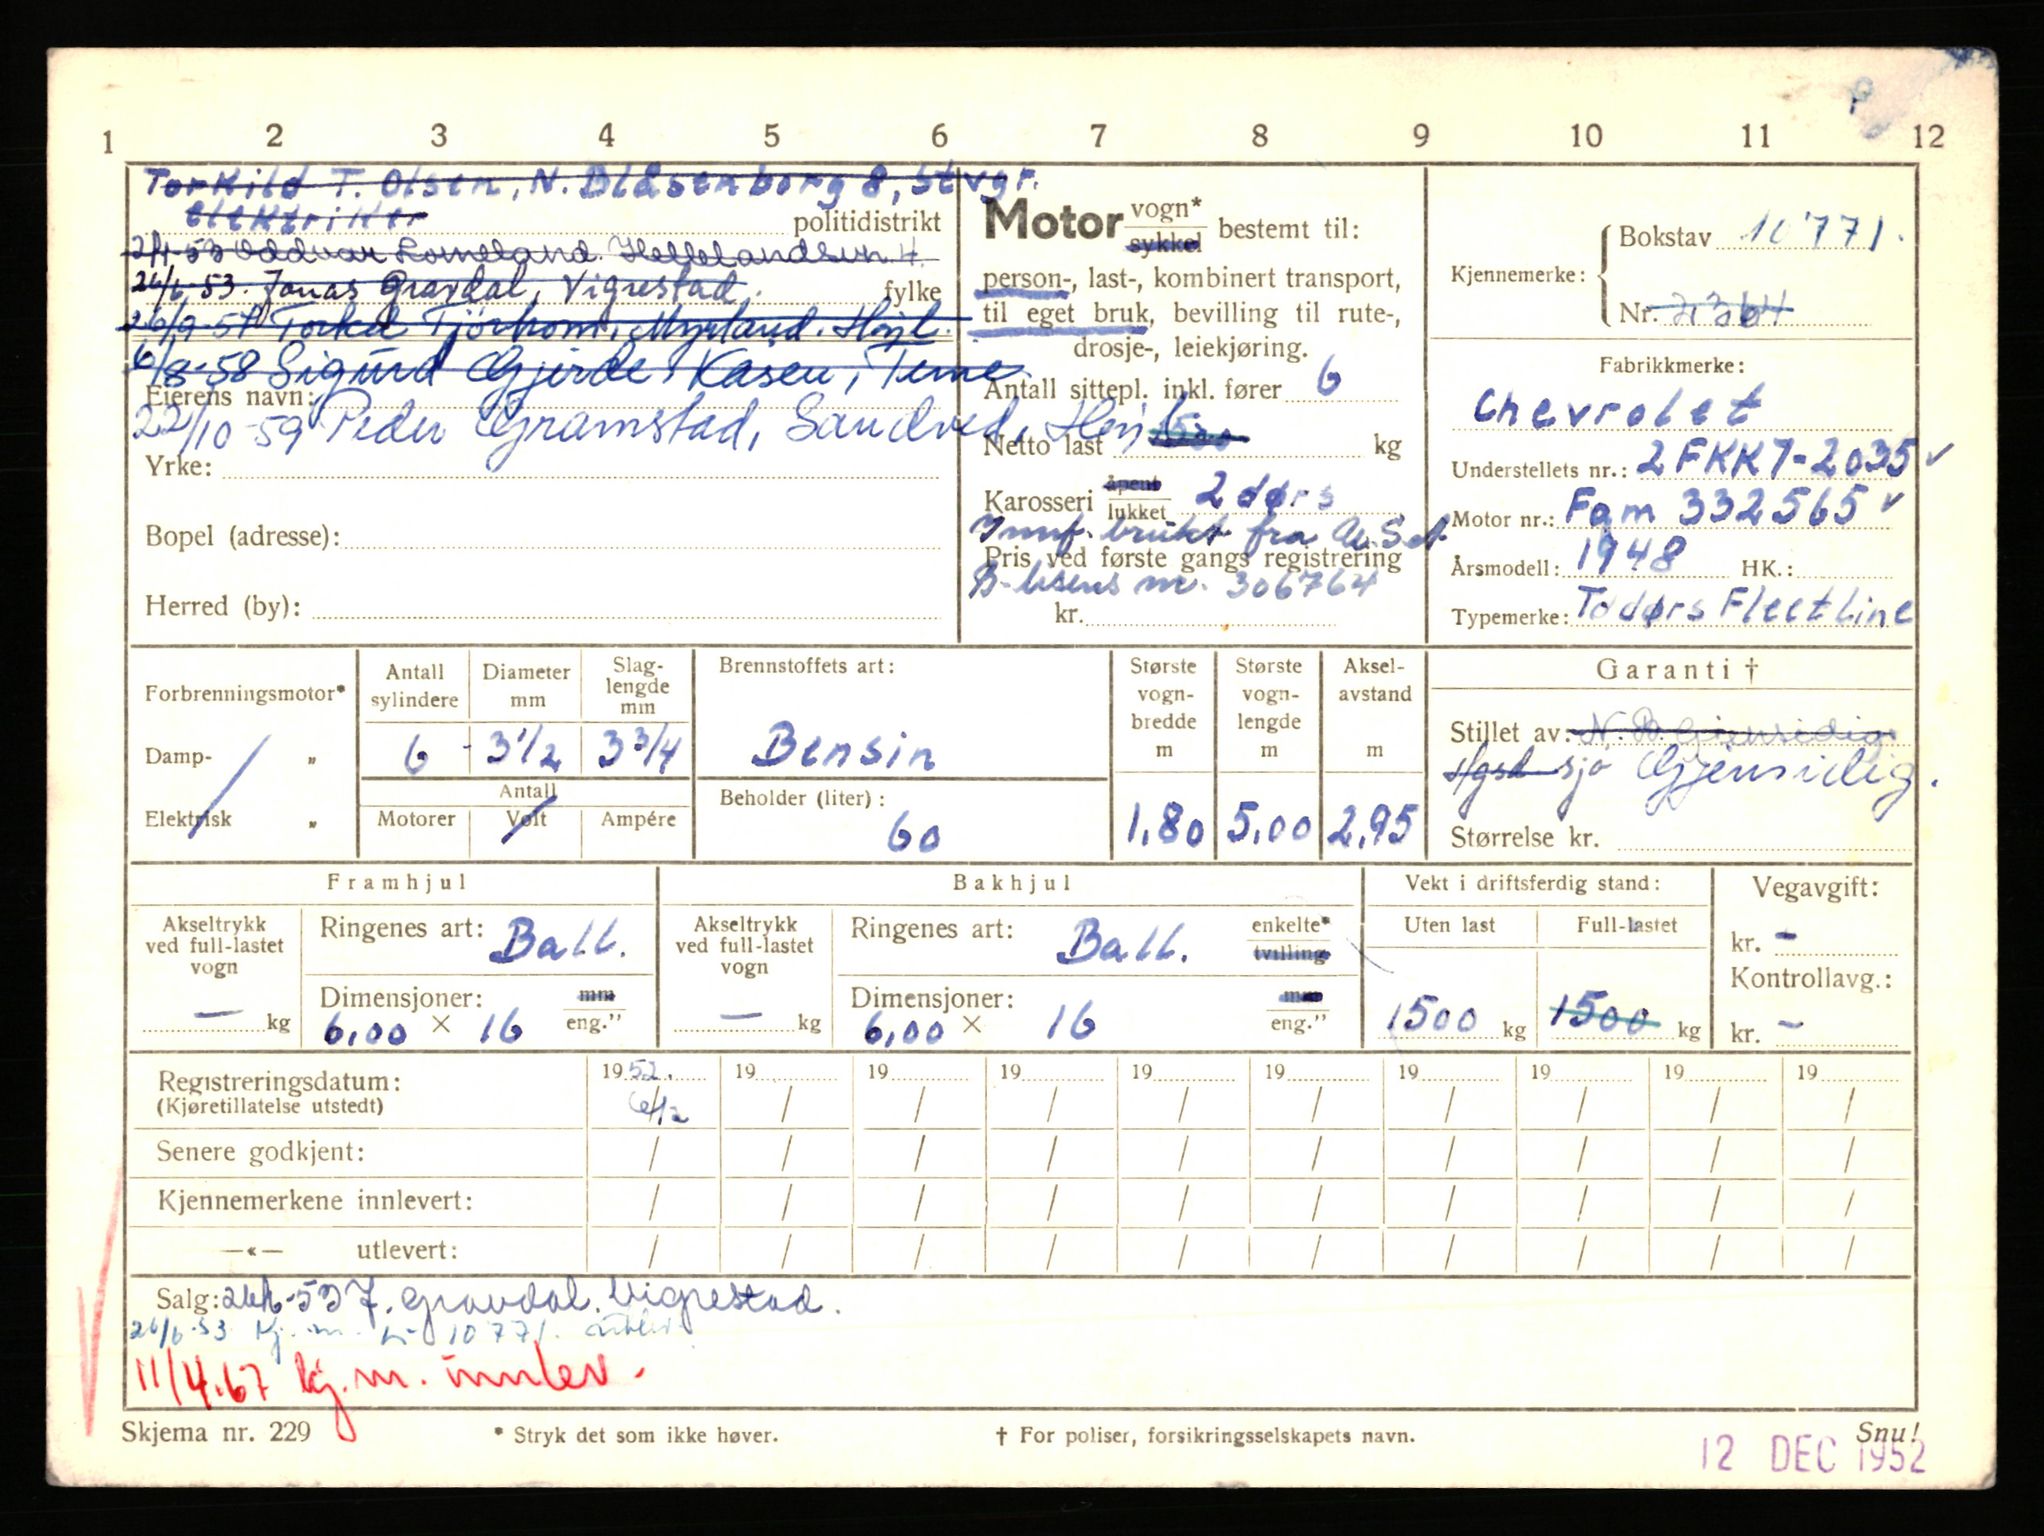 1 2 3 4 5 6 7 8 9 10 11 12
Torkild T. Olsen, N. Blåsenborg 8, Stvgr.
elektriker politidistrikt
2/1-53 Oddvar Lomeland. Hellelandsvn 4.
26/6-53. Jonas Gravdal, Vigrestad. fylke
26/9-57 Torkel Tjörhom, Myrland. Høyl.
6/8-58 Sigurd Gjerde, Kåsen, Time
Eierens navn:
22/10-59 Peder Gramstad, Sandved, Høyl.
Yrke:
Bopel (adresse):
Herred (by):
Motor vogn* sykkel bestemt til:
person-, last-, kombinert transport,
til eget bruk, bevilling til rute-,
drosje-, leiekjøring.
Antall sittepl. inkl. fører 6
Netto last 500 kg
Karosseri åpent lukket 2 dørs
Innf. brukt fra U.S.A
Pris ved første gangs registrering
B-lisens nr. 306764
kr.
Kjennemerke: Bokstav 10771.
Nr.
Fabrikkmerke:
Chevrolet
Understellets nr.: 2FKK7-2035
Motor nr.: Fam 332565
Årsmodell: 1948 HK.:
Typemerke: Todørs Fleetline
Forbrenningsmotor*
Damp- „
Elektrisk „
Antall sylindere 6
Diameter mm 3 1/2
Slag-lengde mm 3 3/4
Antall
Motorer Volt Ampére
Brennstoffets art:
Bensin
Beholder (liter):
60
Største vogn-bredde m 1,80
Største vogn-lengde m 5,00
Aksel-avstand m 2,95
Garanti †
Stillet av: N. B. Gjensidig
Hgsd sjø Gjensidig.
Størrelse kr.
Framhjul
Akseltrykk ved full-lastet vogn — kg
Ringenes art: Ball.
Dimensjoner: mm
6,00 × 16 eng."
Bakhjul
Akseltrykk ved full-lastet vogn — kg
Ringenes art: Ball. enkelte* tvilling
Dimensjoner: mm
6,00 × 16 eng."
Vekt i driftsferdig stand:
Uten last Full-lastet
1500 kg 1500 kg
Vegavgift:
kr. -
Kontrollavg.:
kr. -
Registreringsdatum: 1952. 19 19 19 19 19 19 19 19 19
(Kjøretillatelse utstedt) 6/12 / / / / / / / / /
Senere godkjent: / / / / / / / / / /
Kjennemerkene innlevert: / / / / / / / / / /
—«— utlevert: / / / / / / / / / /
Salg: 26/6-53 J. Gravdal. Vigrestad.
26/6-53 Kj. m. L- 10771. utlev.
11/4.67 kj.m. innlev.
Skjema nr. 229 * Stryk det som ikke høver. † For poliser, forsikringsselskapets navn. Snu!
12 DEC 1952